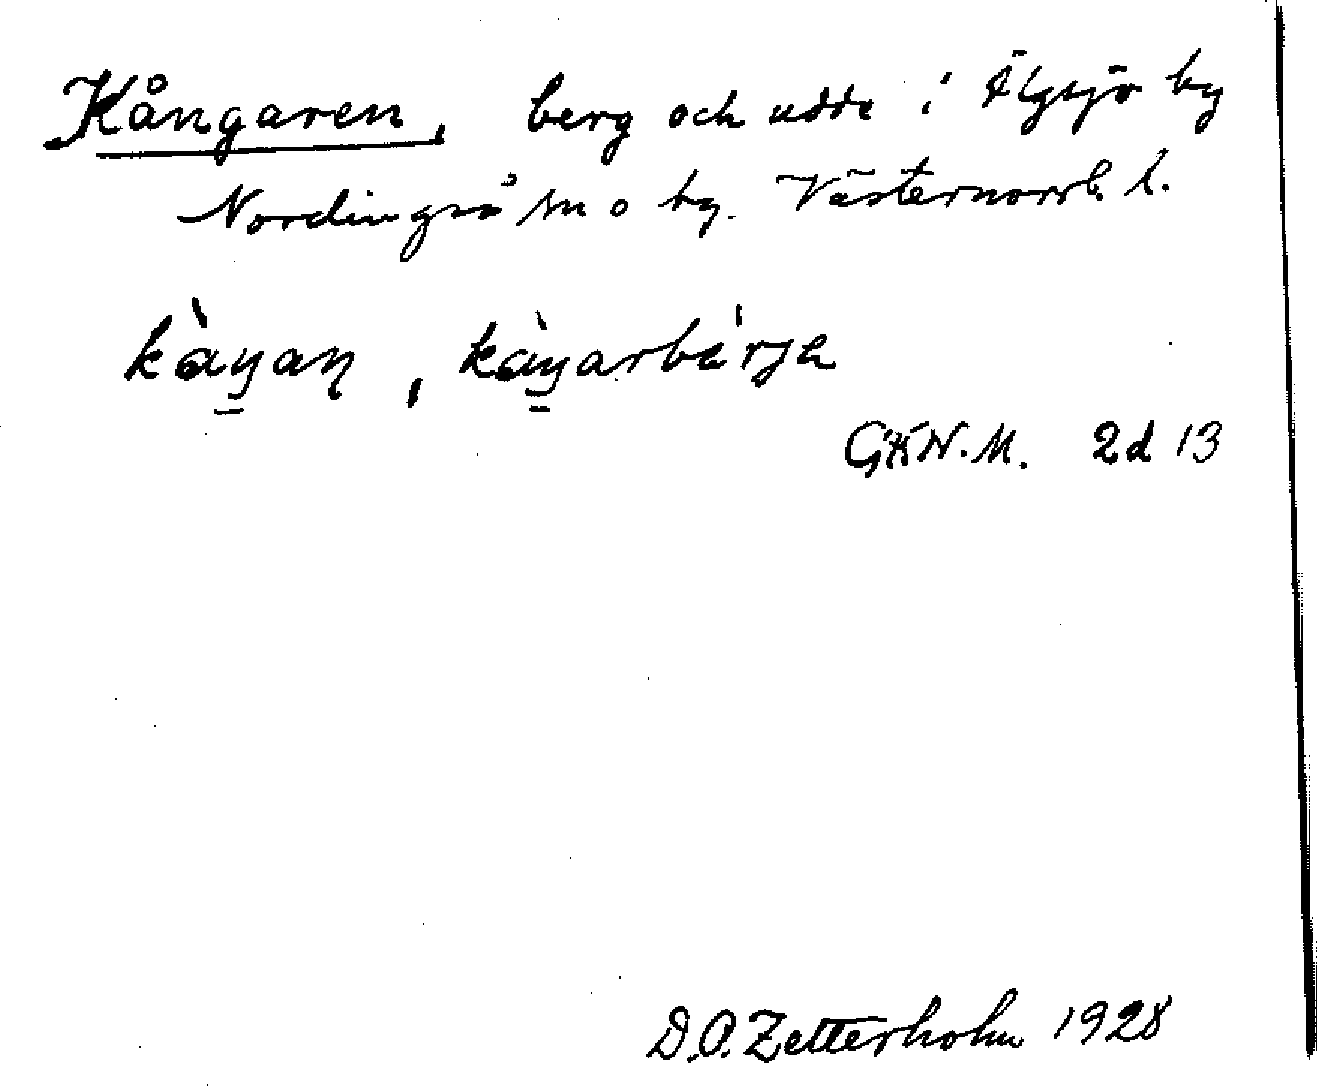 Kångaren, berg och udde i Älgsjö by
Nordingrå sn o by. Västernorrl. l.
kàŋaṇ, kàŋarbärje
GKN.M. 2d 13
D.O. Zetterholm 1928